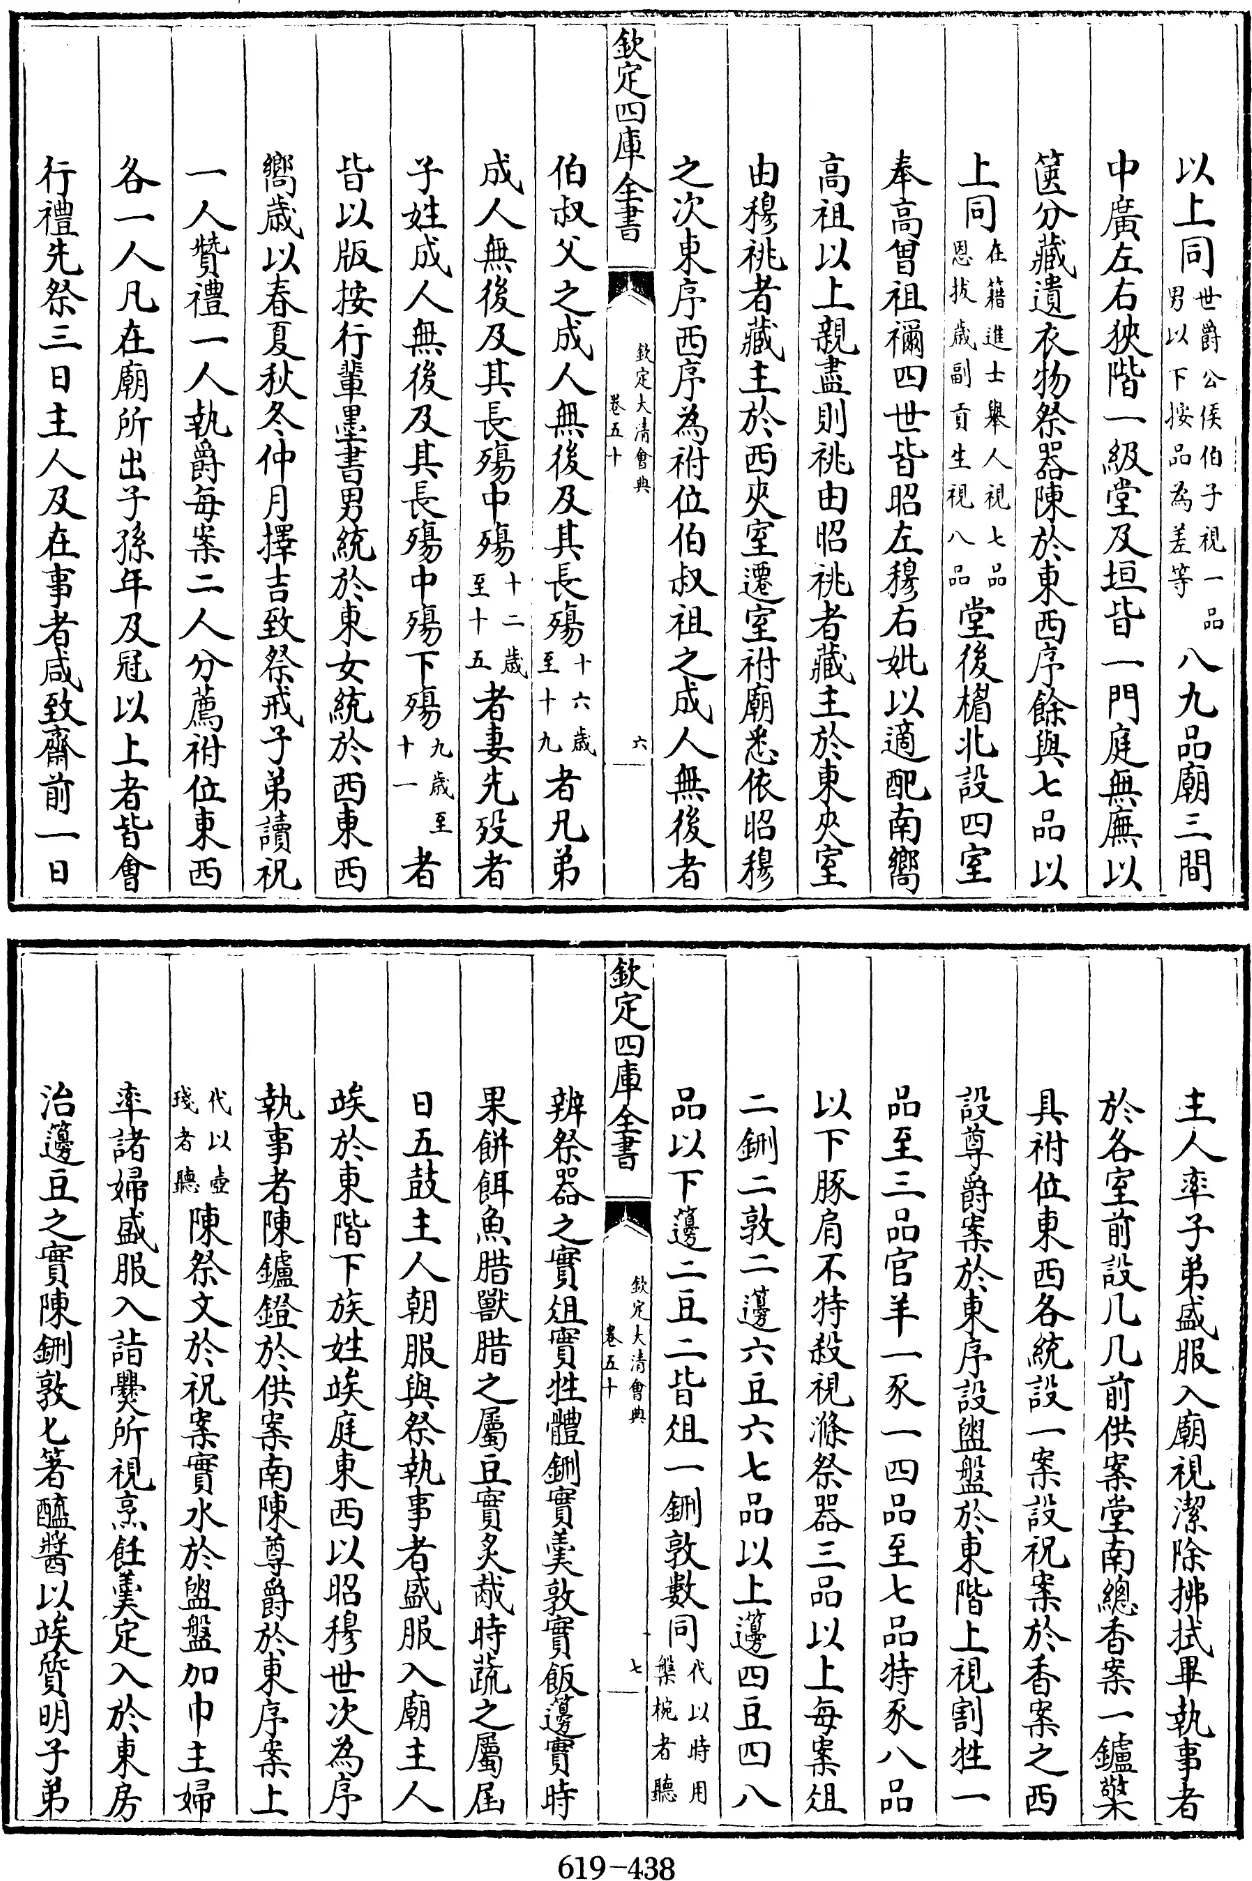 以上同世爵公侯伯子視一品男以下按品為差等八九品廟三間
中廣左右狹階一級堂及垣皆一門庭無廡以
篋分藏遺衣物祭器陳於東西序餘與七品以
上同在籍進士舉人視七品恩拔歲副貢生視八品堂後楣北設四室
奉高曾祖禰四世皆昭左穆右妣以適配南嚮
高祖以上親盡則祧由昭祧者藏主於東夾室
由穆祧者藏主於西夾室遷室祔廟悉依昭穆
之次東序西序為祔位伯叔祖之成人無後者
欽定四庫全書
欽定大清會典
卷五十
六
伯叔父之成人無後及其長殤十六歲至十九者凡兄弟
成人無後及其長殤中殤十二歲至十五者妻先歿者
子姓成人無後及其長殤中殤下殤九歲至十一者
皆以版按行輩墨書男統於東女統於西東西
嚮歲以春夏秋冬仲月擇吉致祭戒子弟讀祝
一人贊禮一人執爵每案二人分薦祔位東西
各一人凡在廟所出子孫年及冠以上者皆會
行禮先祭三日主人及在事者咸致齋前一日
主人率子弟盛服入廟視潔除拂拭畢執事者
於各室前設几几前供案堂南總香案一鑪檠
具祔位東西各統設一案設祝案於香案之西
設尊爵案於東序設盥盤於東階上視割牲一
品至三品官羊一豕一四品至七品特豕八品
以下豚肩不特殺視滌祭器三品以上每案俎
二鉶二敦二籩六豆六七品以上籩四豆四八
品以下籩二豆二皆俎一鉶敦數同代以時用槃椀者聽
欽定四庫全書
欽定大清會典
卷五十
七
辨祭器之實俎實牲體鉶實羹敦實飯籩實時
果餅餌魚腊獸腊之屬豆實炙胾時蔬之屬屆
日五鼓主人朝服與祭執事者盛服入廟主人
竢於東階下族姓竢庭東西以昭穆世次為序
執事者陳鑪鐙於供案南陳尊爵於東序案上
代以壺琖者聽陳祭文於祝案實水於盥盤加巾主婦
率諸婦盛服入詣爨所視烹飪羹定入於東房
治籩豆之實陳鉶敦匕箸醯醬以竢質明子弟
619-438